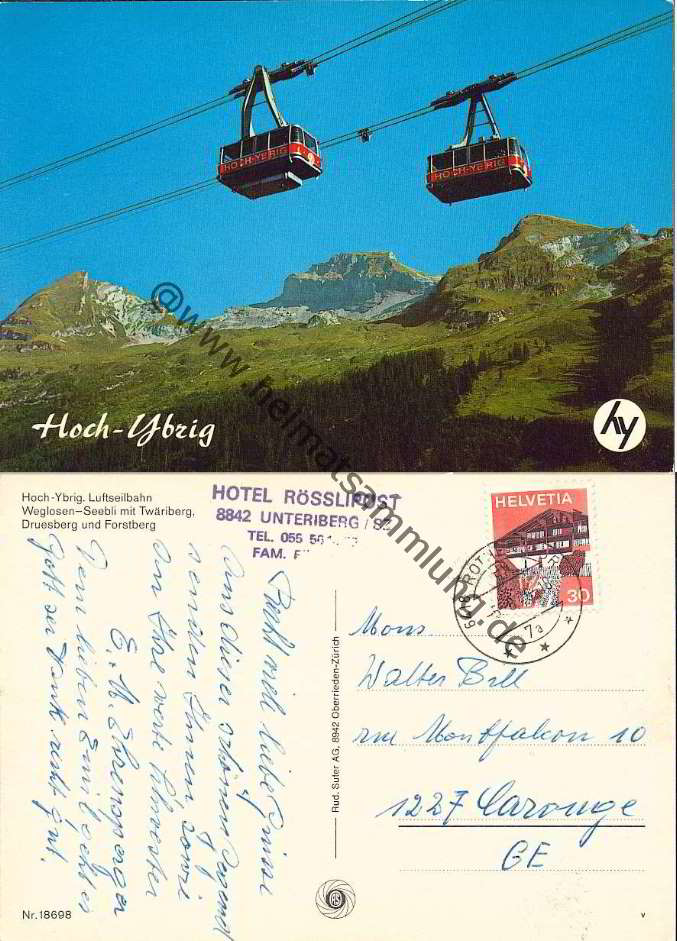 HOCH-YBRIG
HOCH-YBRIG
Hoch-Ybrig
hy
@www.heimatsammlung.de
Hoch-Ybrig. Luftseilbahn
Weglosen–Seebli mit Twäriberg,
Druesberg und Forstberg
HOTEL RÖSSLIPOST
8842 UNTERIBERG / SZ
TEL. 055 56
FAM.
HELVETIA
30
6418 ROT
Recht viel liebe Grüsse
aus dieser schönen Gegend
senden Ihnen sowie
an Ihre werte Schwester
E. M. Ehrensperger
Dem lieben Emil geht es
Gott sei Dank recht gut.
Rud. Suter AG, 8942 Oberrieden-Zürich
Mons.
Walter Bill
rue Montfalcon 10
1227 Carouge
GE
RS
Nr. 18698
v